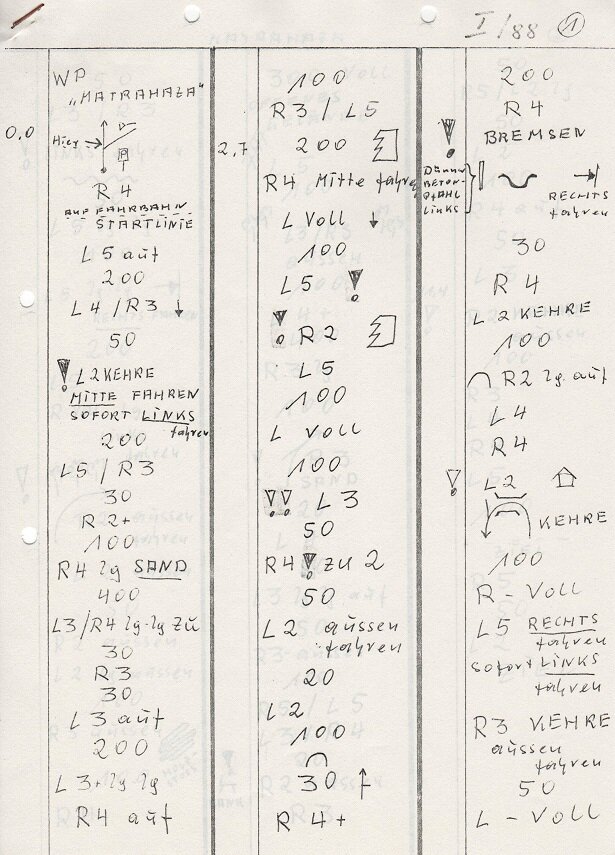 I/88 1
WP
„MATRAHAZA"
0,0
Hier
R4
AUF FAHRBAHN
STARTLINIE
L5 auf
200
L4/R3 ↓
50
! L2 KEHRE
MITTE FAHREN
SOFORT LINKS
fahren
200
L5/R3
30
R2+
100
R4 lg SAND
400
L3/R4 lg-lg zu
30
R3
30
L3 auf
200
L3+ lg lg
R4 auf
100
R3/L5
2,7
200
R4 Mitte fahren
L Voll ↓
100
L5 !
! R2
L5
100
L Voll
100
!! L3
50
R4 ! zu 2
50
L2 aussen
fahren
20
L2
100
30 ↑
R4+
200
R4
! BREMSEN
DÜNNER
BETON-
PFAHL
LINKS
RECHTS
fahren
30
R4
L2 KEHRE
100
R2 lg auf
L4
R4
! L2
KEHRE
100
R-Voll
L5 RECHTS
fahren
sofort LINKS
fahren
R3 KEHRE
aüssen
fahren
50
L-Voll